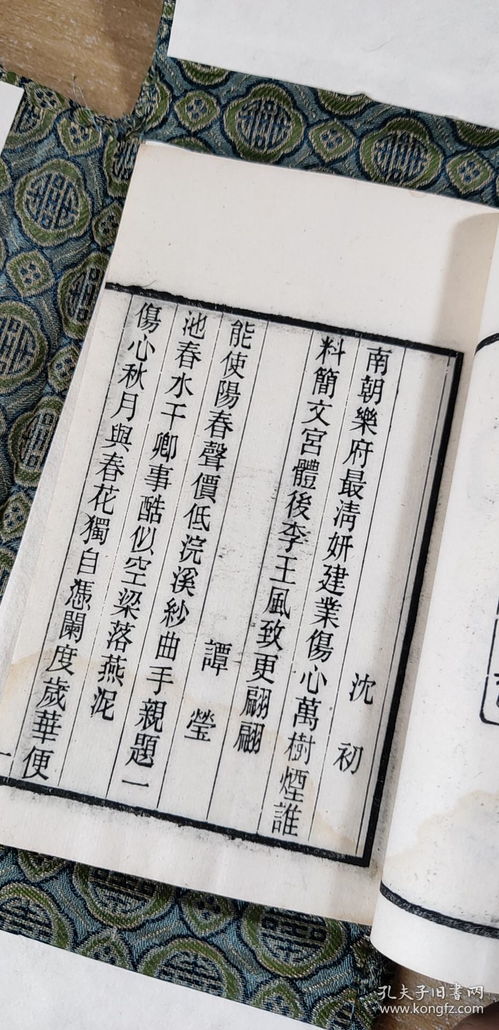 沈初
南朝樂府最清妍建業傷心萬樹煙誰
料簡文宮體後李王風致更翩翩
譚瑩
能使陽春聲價低浣溪紗曲手親題一
池春水干卿事酷似空梁落燕泥
傷心秋月與春花獨自憑闌度歲華便
一
孔夫子旧书网
www.kongfz.com